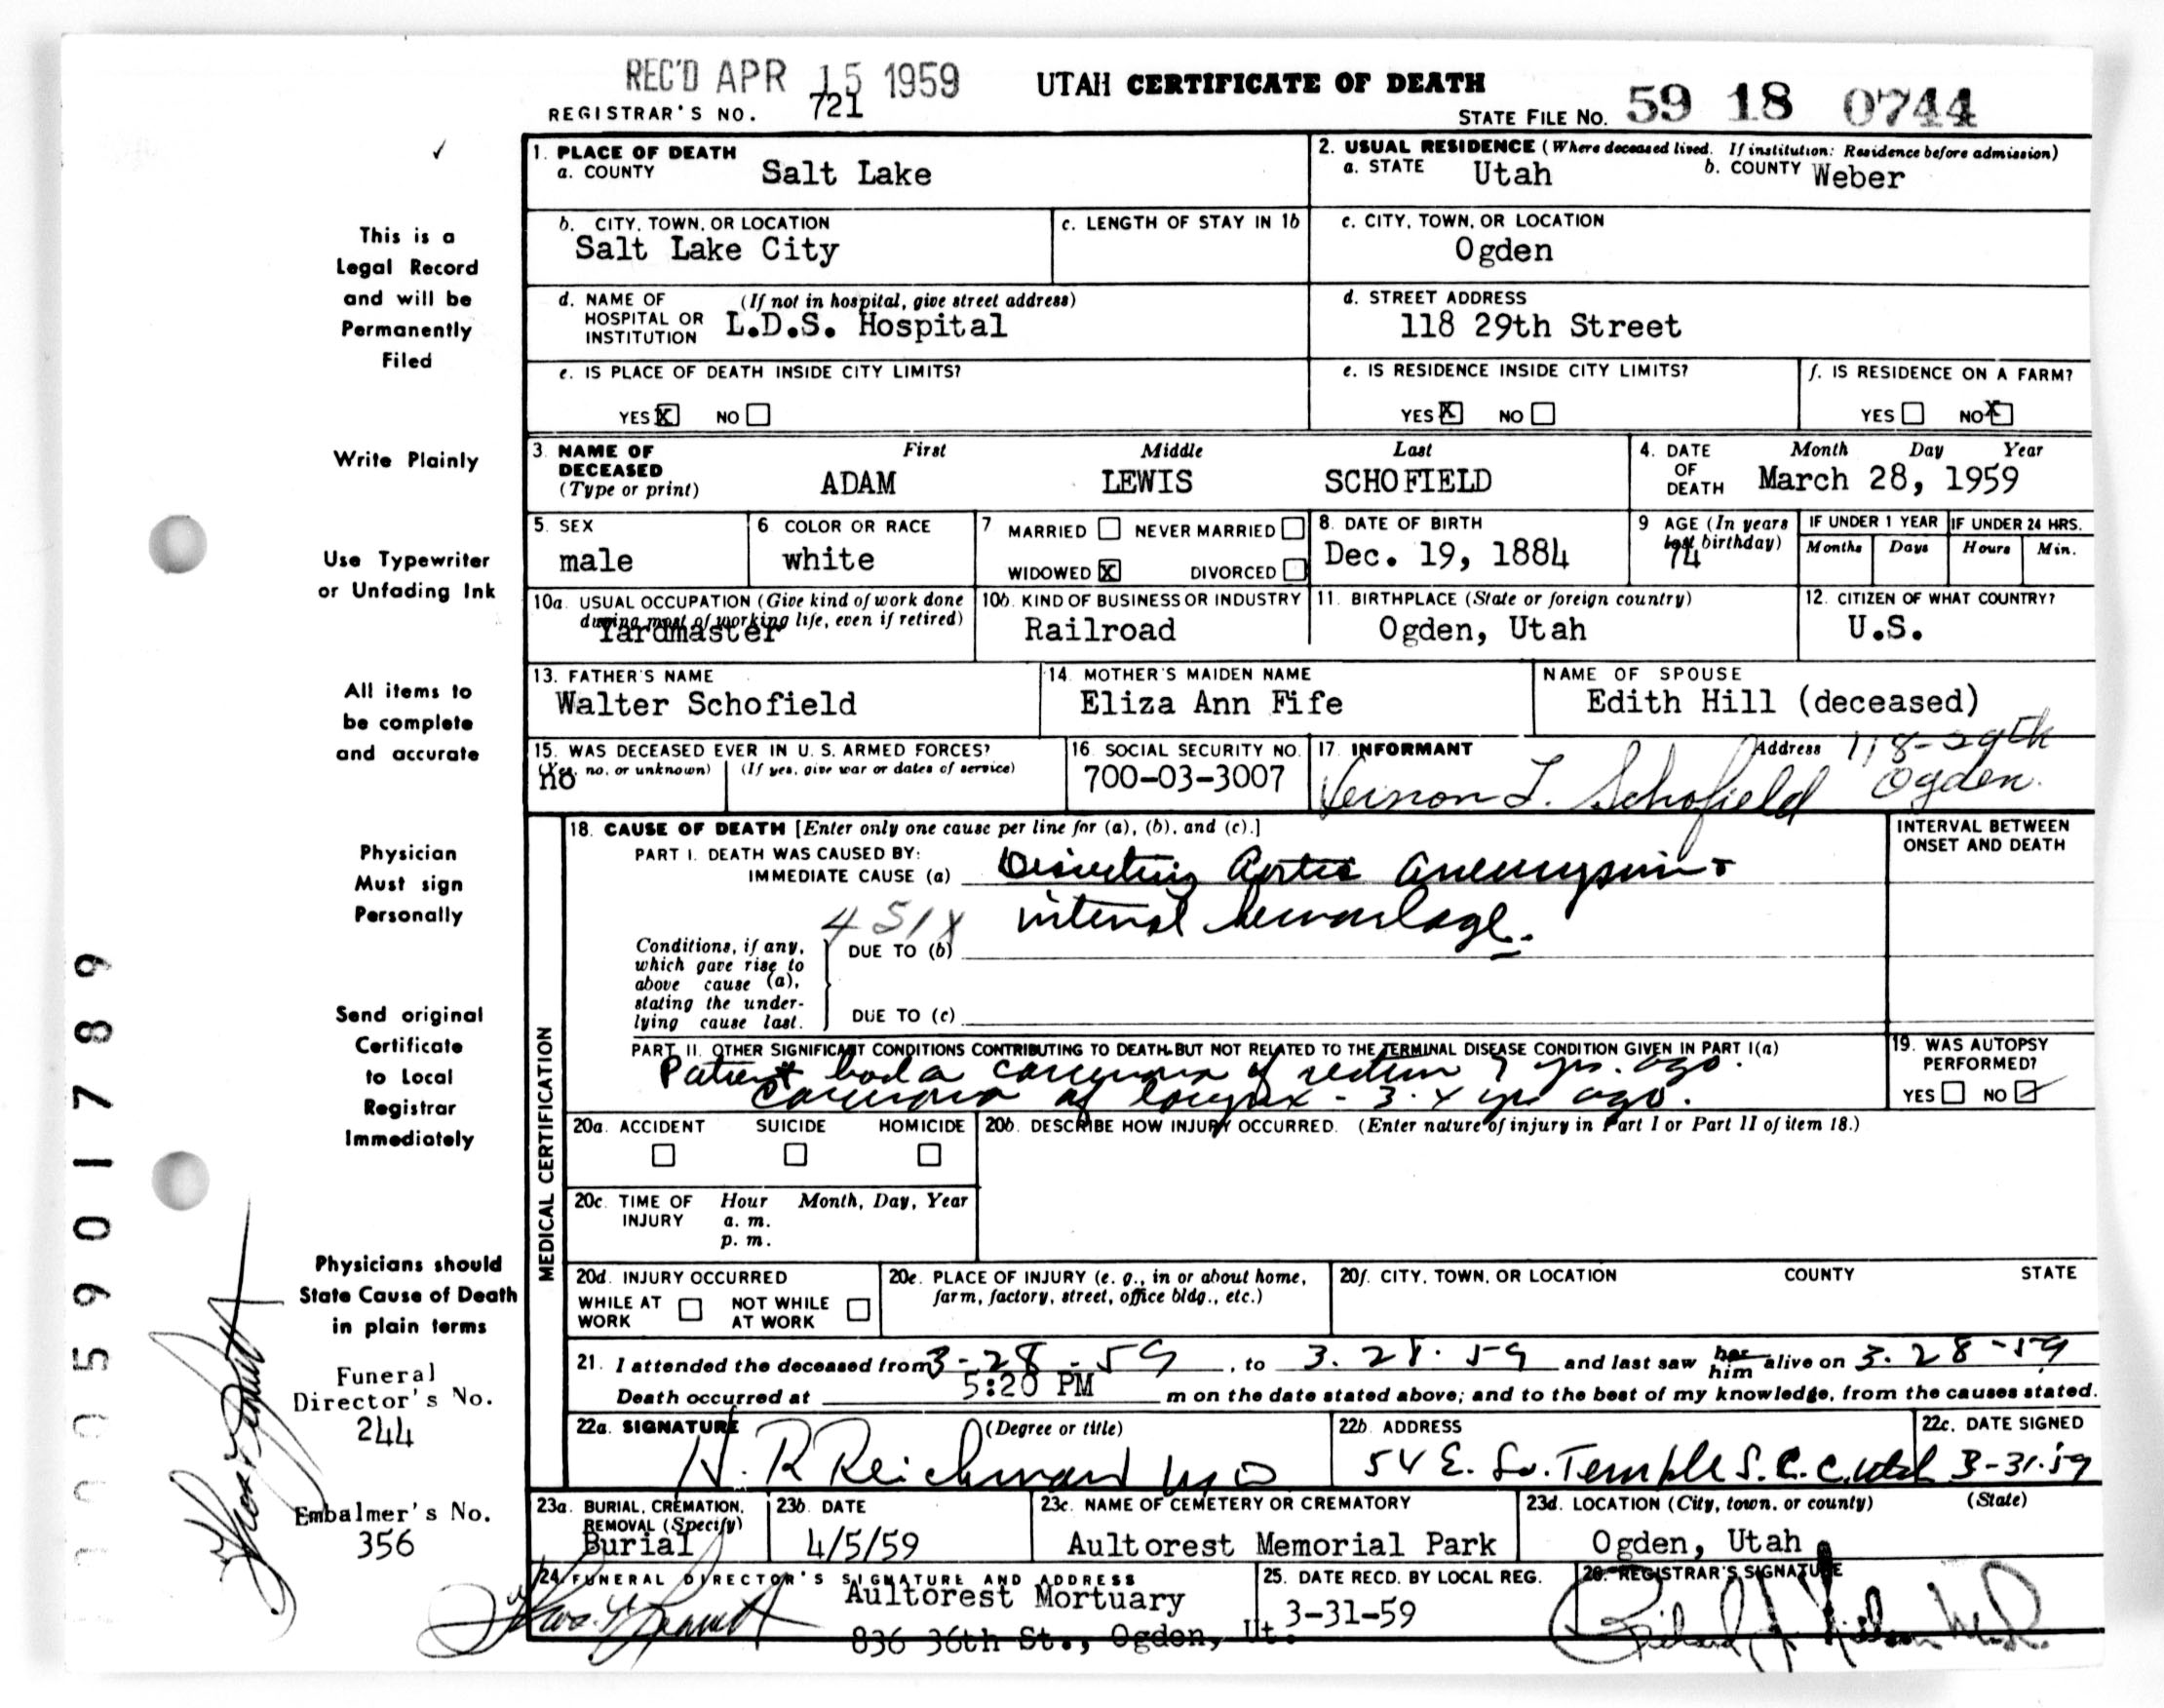 REC'D APR 15 1959
UTAH CERTIFICATE OF DEATH
REGISTRAR'S NO. 721
STATE FILE NO. 59 18 0744
✓
This is a
Legal Record
and will be
Permanently
Filed
Write Plainly
Use Typewriter
or Unfading Ink
All items to
be complete
and accurate
Physician
Must sign
Personally
Send original
Certificate
to Local
Registrar
Immediately
Physicians should
State Cause of Death
in plain terms
Funeral
Director's No.
244
Embalmer's No.
356
005901789
1. PLACE OF DEATH
a. COUNTY Salt Lake
2. USUAL RESIDENCE (Where deceased lived. If institution: Residence before admission)
a. STATE Utah b. COUNTY Weber
b. CITY, TOWN, OR LOCATION
Salt Lake City
c. LENGTH OF STAY IN 1b
c. CITY, TOWN, OR LOCATION
Ogden
d. NAME OF HOSPITAL OR INSTITUTION (If not in hospital, give street address)
L.D.S. Hospital
d. STREET ADDRESS
118 29th Street
e. IS PLACE OF DEATH INSIDE CITY LIMITS?
YES X NO
e. IS RESIDENCE INSIDE CITY LIMITS?
YES X NO
f. IS RESIDENCE ON A FARM?
YES NO X
3. NAME OF DECEASED (Type or print)
First Middle Last
ADAM LEWIS SCHOFIELD
4. DATE OF DEATH Month Day Year
March 28, 1959
5. SEX
male
6. COLOR OR RACE
white
7 MARRIED NEVER MARRIED
WIDOWED X DIVORCED
8. DATE OF BIRTH
Dec. 19, 1884
9 AGE (In years last birthday)
74
IF UNDER 1 YEAR
Months Days
IF UNDER 24 HRS.
Hours Min.
10a. USUAL OCCUPATION (Give kind of work done during most of working life, even if retired)
Yardmaster
10b. KIND OF BUSINESS OR INDUSTRY
Railroad
11. BIRTHPLACE (State or foreign country)
Ogden, Utah
12. CITIZEN OF WHAT COUNTRY?
U.S.
13. FATHER'S NAME
Walter Schofield
14. MOTHER'S MAIDEN NAME
Eliza Ann Fife
NAME OF SPOUSE
Edith Hill (deceased)
15. WAS DECEASED EVER IN U. S. ARMED FORCES?
(Yes, no, or unknown) (If yes, give war or dates of service)
no
16. SOCIAL SECURITY NO.
700-03-3007
17. INFORMANT Address
Vernon L. Schofield 118-29th
Ogden.
MEDICAL CERTIFICATION
18. CAUSE OF DEATH [Enter only one cause per line for (a), (b), and (c).]
INTERVAL BETWEEN
ONSET AND DEATH
PART I. DEATH WAS CAUSED BY:
IMMEDIATE CAUSE (a) Disecting Aortic Aneurysm +
internal hemorrhage.
451X
Conditions, if any, which gave rise to above cause (a), stating the underlying cause last.
DUE TO (b)
DUE TO (c)
PART II. OTHER SIGNIFICANT CONDITIONS CONTRIBUTING TO DEATH BUT NOT RELATED TO THE TERMINAL DISEASE CONDITION GIVEN IN PART I(a)
Patient had a carcinoma of rectum 7 yrs. ago.
Carcinoma of larynx - 3.4 yrs ago.
19. WAS AUTOPSY
PERFORMED?
YES NO ✓
20a. ACCIDENT SUICIDE HOMICIDE
20b. DESCRIBE HOW INJURY OCCURRED. (Enter nature of injury in Part I or Part II of item 18.)
20c. TIME OF INJURY Hour Month, Day, Year
a. m.
p. m.
20d. INJURY OCCURRED
WHILE AT WORK NOT WHILE AT WORK
20e. PLACE OF INJURY (e. g., in or about home, farm, factory, street, office bldg., etc.)
20f. CITY, TOWN, OR LOCATION COUNTY STATE
21. I attended the deceased from 3-28-59, to 3.28.59 and last saw her him alive on 3.28-59
Death occurred at 5:20 PM m on the date stated above; and to the best of my knowledge, from the causes stated.
22a. SIGNATURE (Degree or title)
N. R Reichman MD
22b. ADDRESS
54 E. So. Temple S.L.C. Utah
22c. DATE SIGNED
3-31-59
23a. BURIAL, CREMATION, REMOVAL (Specify)
Burial
23b. DATE
4/5/59
23c. NAME OF CEMETERY OR CREMATORY
Aultorest Memorial Park
23d. LOCATION (City, town, or county) (State)
Ogden, Utah
24. FUNERAL DIRECTOR'S SIGNATURE AND ADDRESS
Aultorest Mortuary
836 36th St., Ogden, Ut.
25. DATE RECD. BY LOCAL REG.
3-31-59
26. REGISTRAR'S SIGNATURE